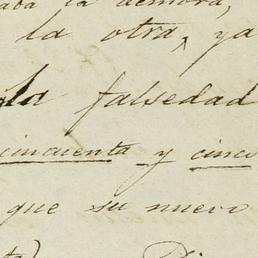 la demora,
la otra, ya
la falsedad
cincuenta y cinco
que su nuevo